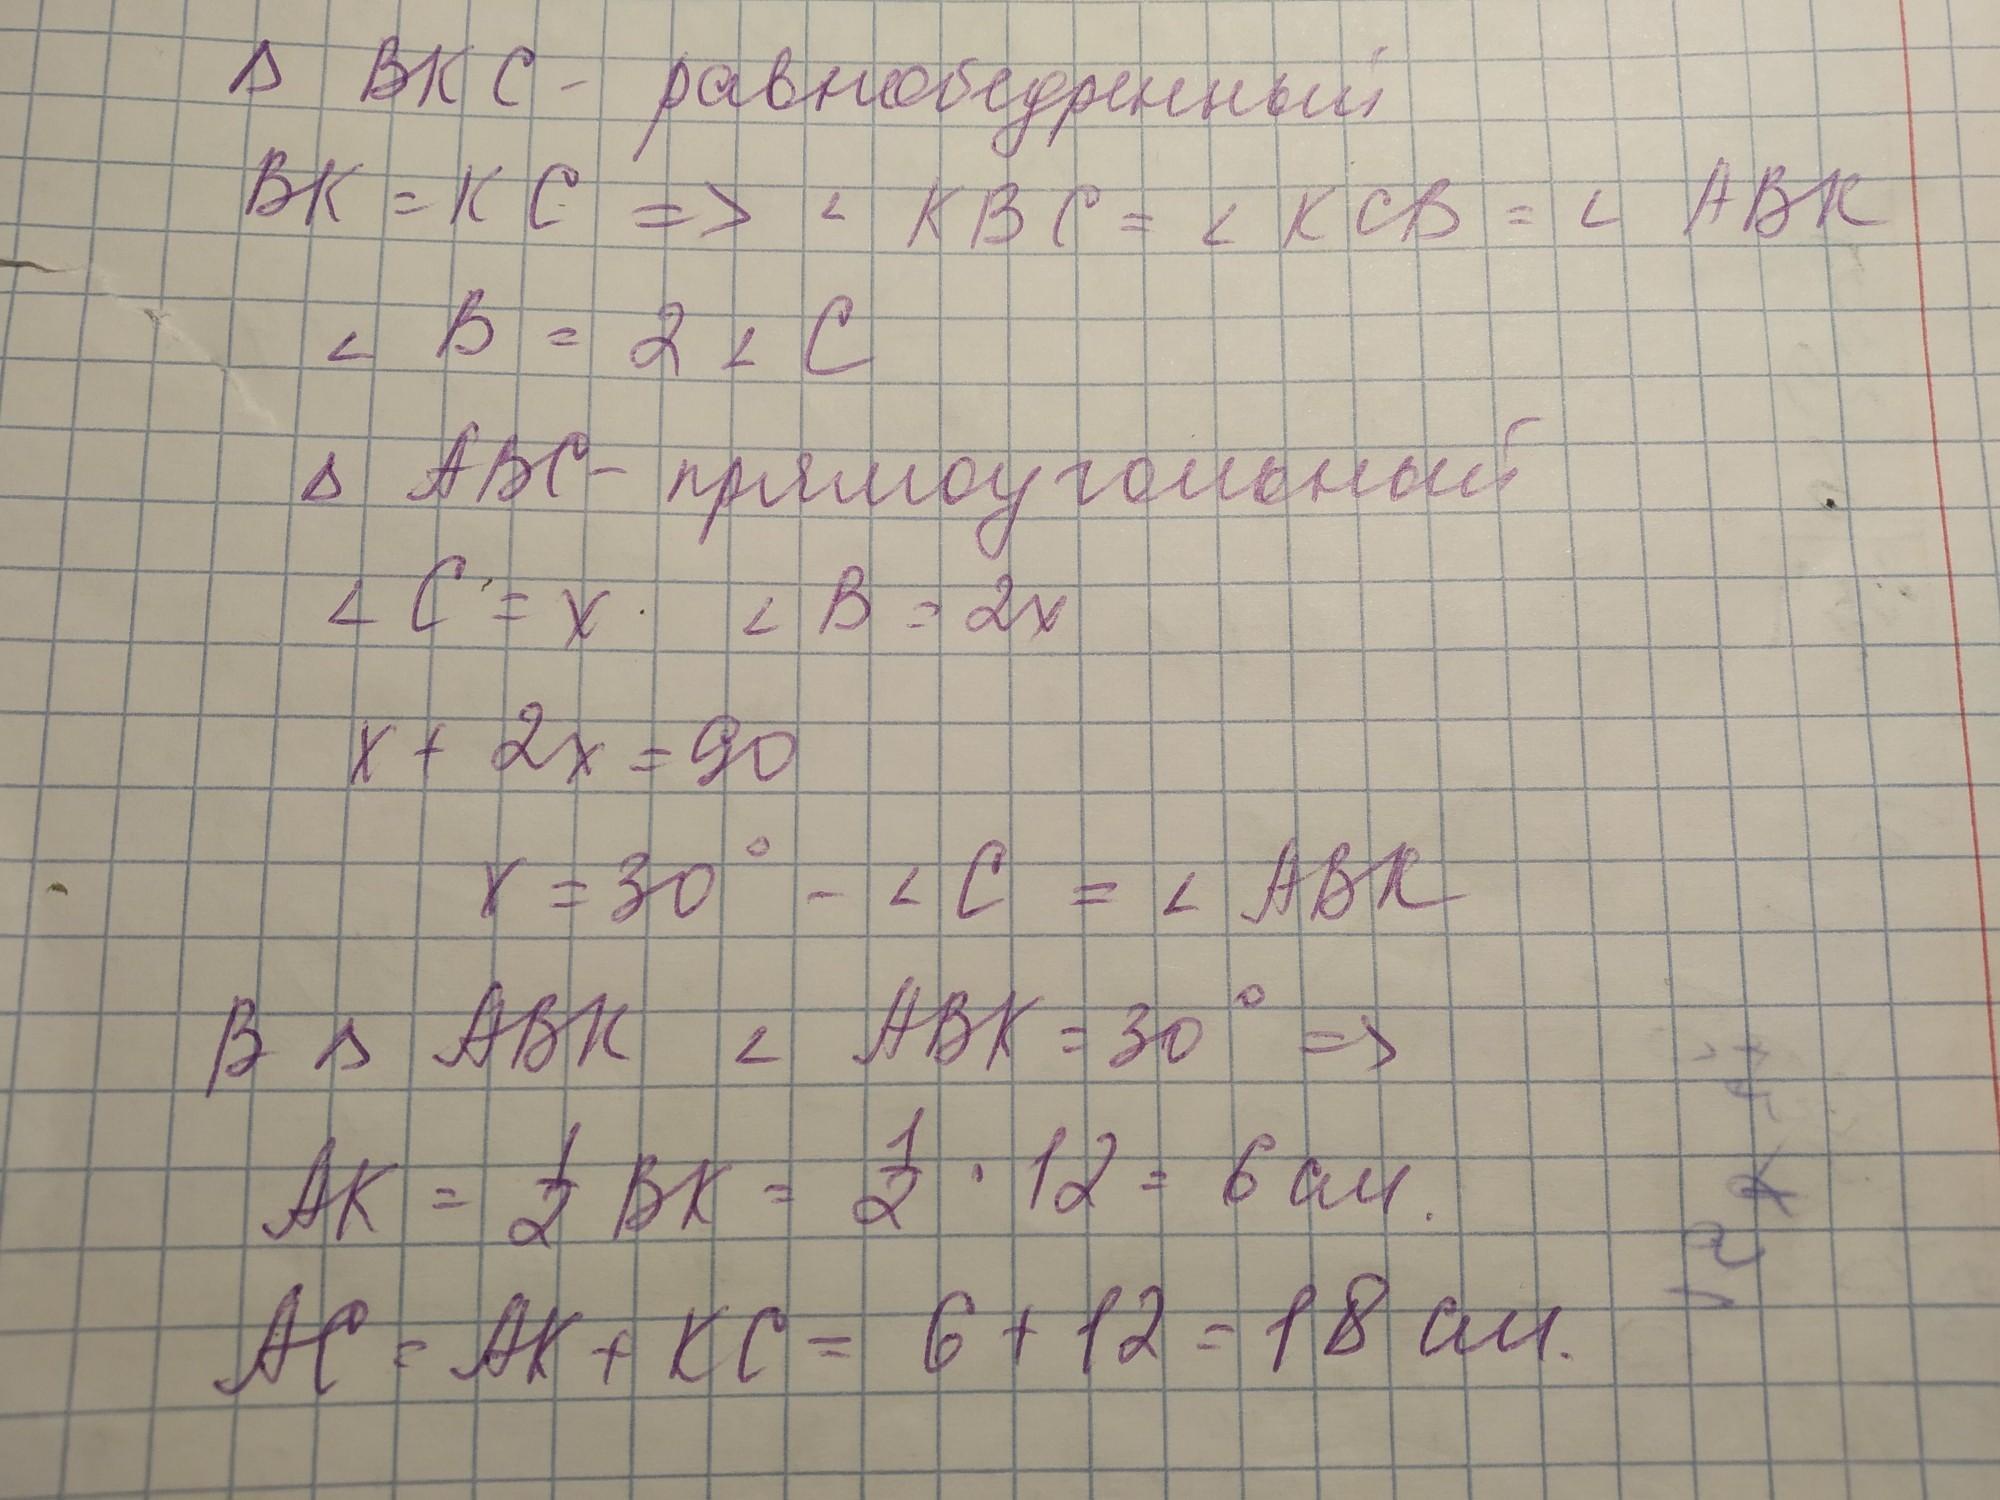 Δ BKC - равнобедренный
BK = KC => ∠ KBC = ∠ KCB = ∠ ABK
∠ B = 2 ∠ C
Δ ABC - прямоугольный
∠ C = x ∠ B = 2x
x + 2x = 90
x = 30° - ∠ C = ∠ ABK
В Δ ABK ∠ ABK = 30° =>
AK = 1/2 BK = 1/2 · 12 = 6 см.
AC = AK + KC = 6 + 12 = 18 см.